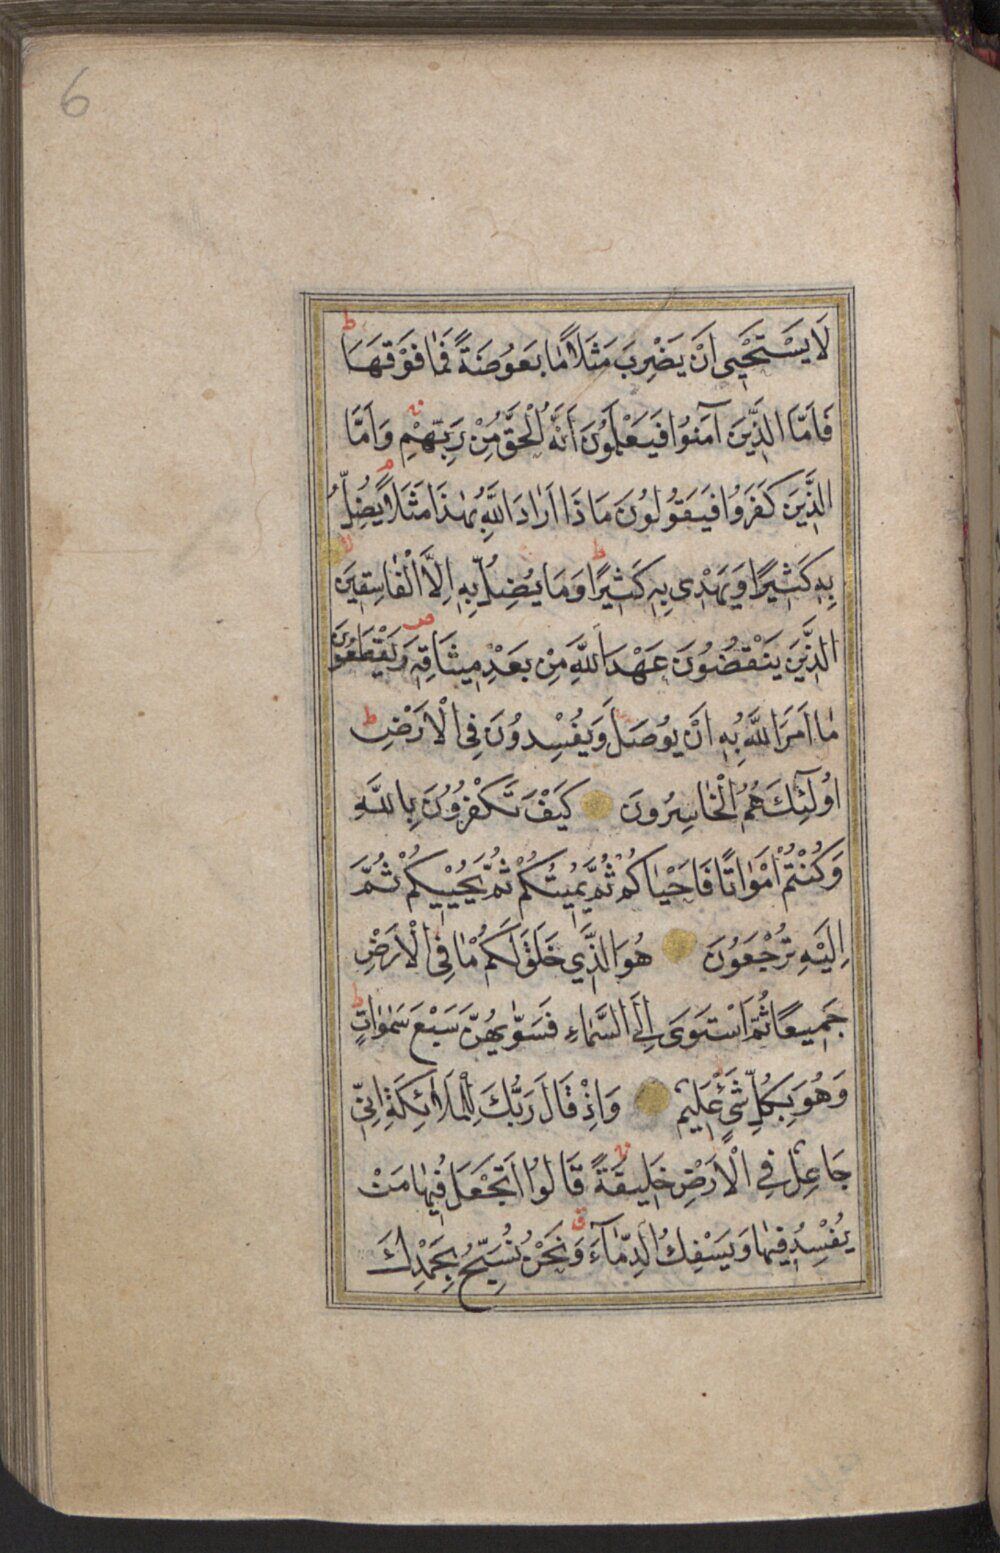 6
لَا يَسْتَحْيِي اَنْ يَضْرِبَ مَثَلًا مَا بَعُوضَةً فَمَا فَوْقَهَا ط
فَاَمَّا الَّذِينَ آمَنُوا فَيَعْلَمُونَ اَنَّهُ الْحَقُّ مِنْ رَبِّهِمْ وَاَمَّا
الَّذِينَ كَفَرُوا فَيَقُولُونَ مَاذَا اَرَادَ اللَّهُ بِهٰذَا مَثَلًا م يُضِلُّ
بِهِ كَثِيرًا وَيَهْدِى بِهِ كَثِيرًا ط وَمَا يُضِلُّ بِهِ اِلَّا الْفَاسِقِينَ لا
الَّذِينَ يَنْقُضُونَ عَهْدَ اللَّهِ مِنْ بَعْدِ مِيثَاقِهِ ص وَيَقْطَعُونَ
مَا اَمَرَ اللَّهُ بِهِ اَنْ يُوصَلَ وَيُفْسِدُونَ فِى الْاَرْضِ ط
اُولٰئِكَ هُمُ الْخَاسِرُونَ كَيْفَ تَكْفُرُونَ بِاللَّهِ
وَكُنْتُمْ اَمْوَاتًا فَاَحْيَاكُمْ ثُمَّ يُمِيتُكُمْ ثُمَّ يُحْيِيكُمْ ثُمَّ
اِلَيْهِ تُرْجَعُونَ هُوَ الَّذِي خَلَقَ لَكُمْ مَا فِى الْاَرْضِ
جَمِيعًا ثُمَّ اسْتَوَى اِلَى السَّمَاءِ فَسَوّٰيهُنَّ سَبْعَ سَمٰوَاتٍ ط
وَهُوَ بِكُلِّ شَيْءٍ عَلِيمٌ وَاِذْ قَالَ رَبُّكَ لِلْمَلَائِكَةِ اِنِّى
جَاعِلٌ فِي الْاَرْضِ خَلِيفَةً قَالُوا اَتَجْعَلُ فِيهَا مَنْ
يُفْسِدُ فِيهَا وَيَسْفِكُ الدِّمَاءَ ق وَنَحْنُ نُسَبِّحُ بِحَمْدِكَ